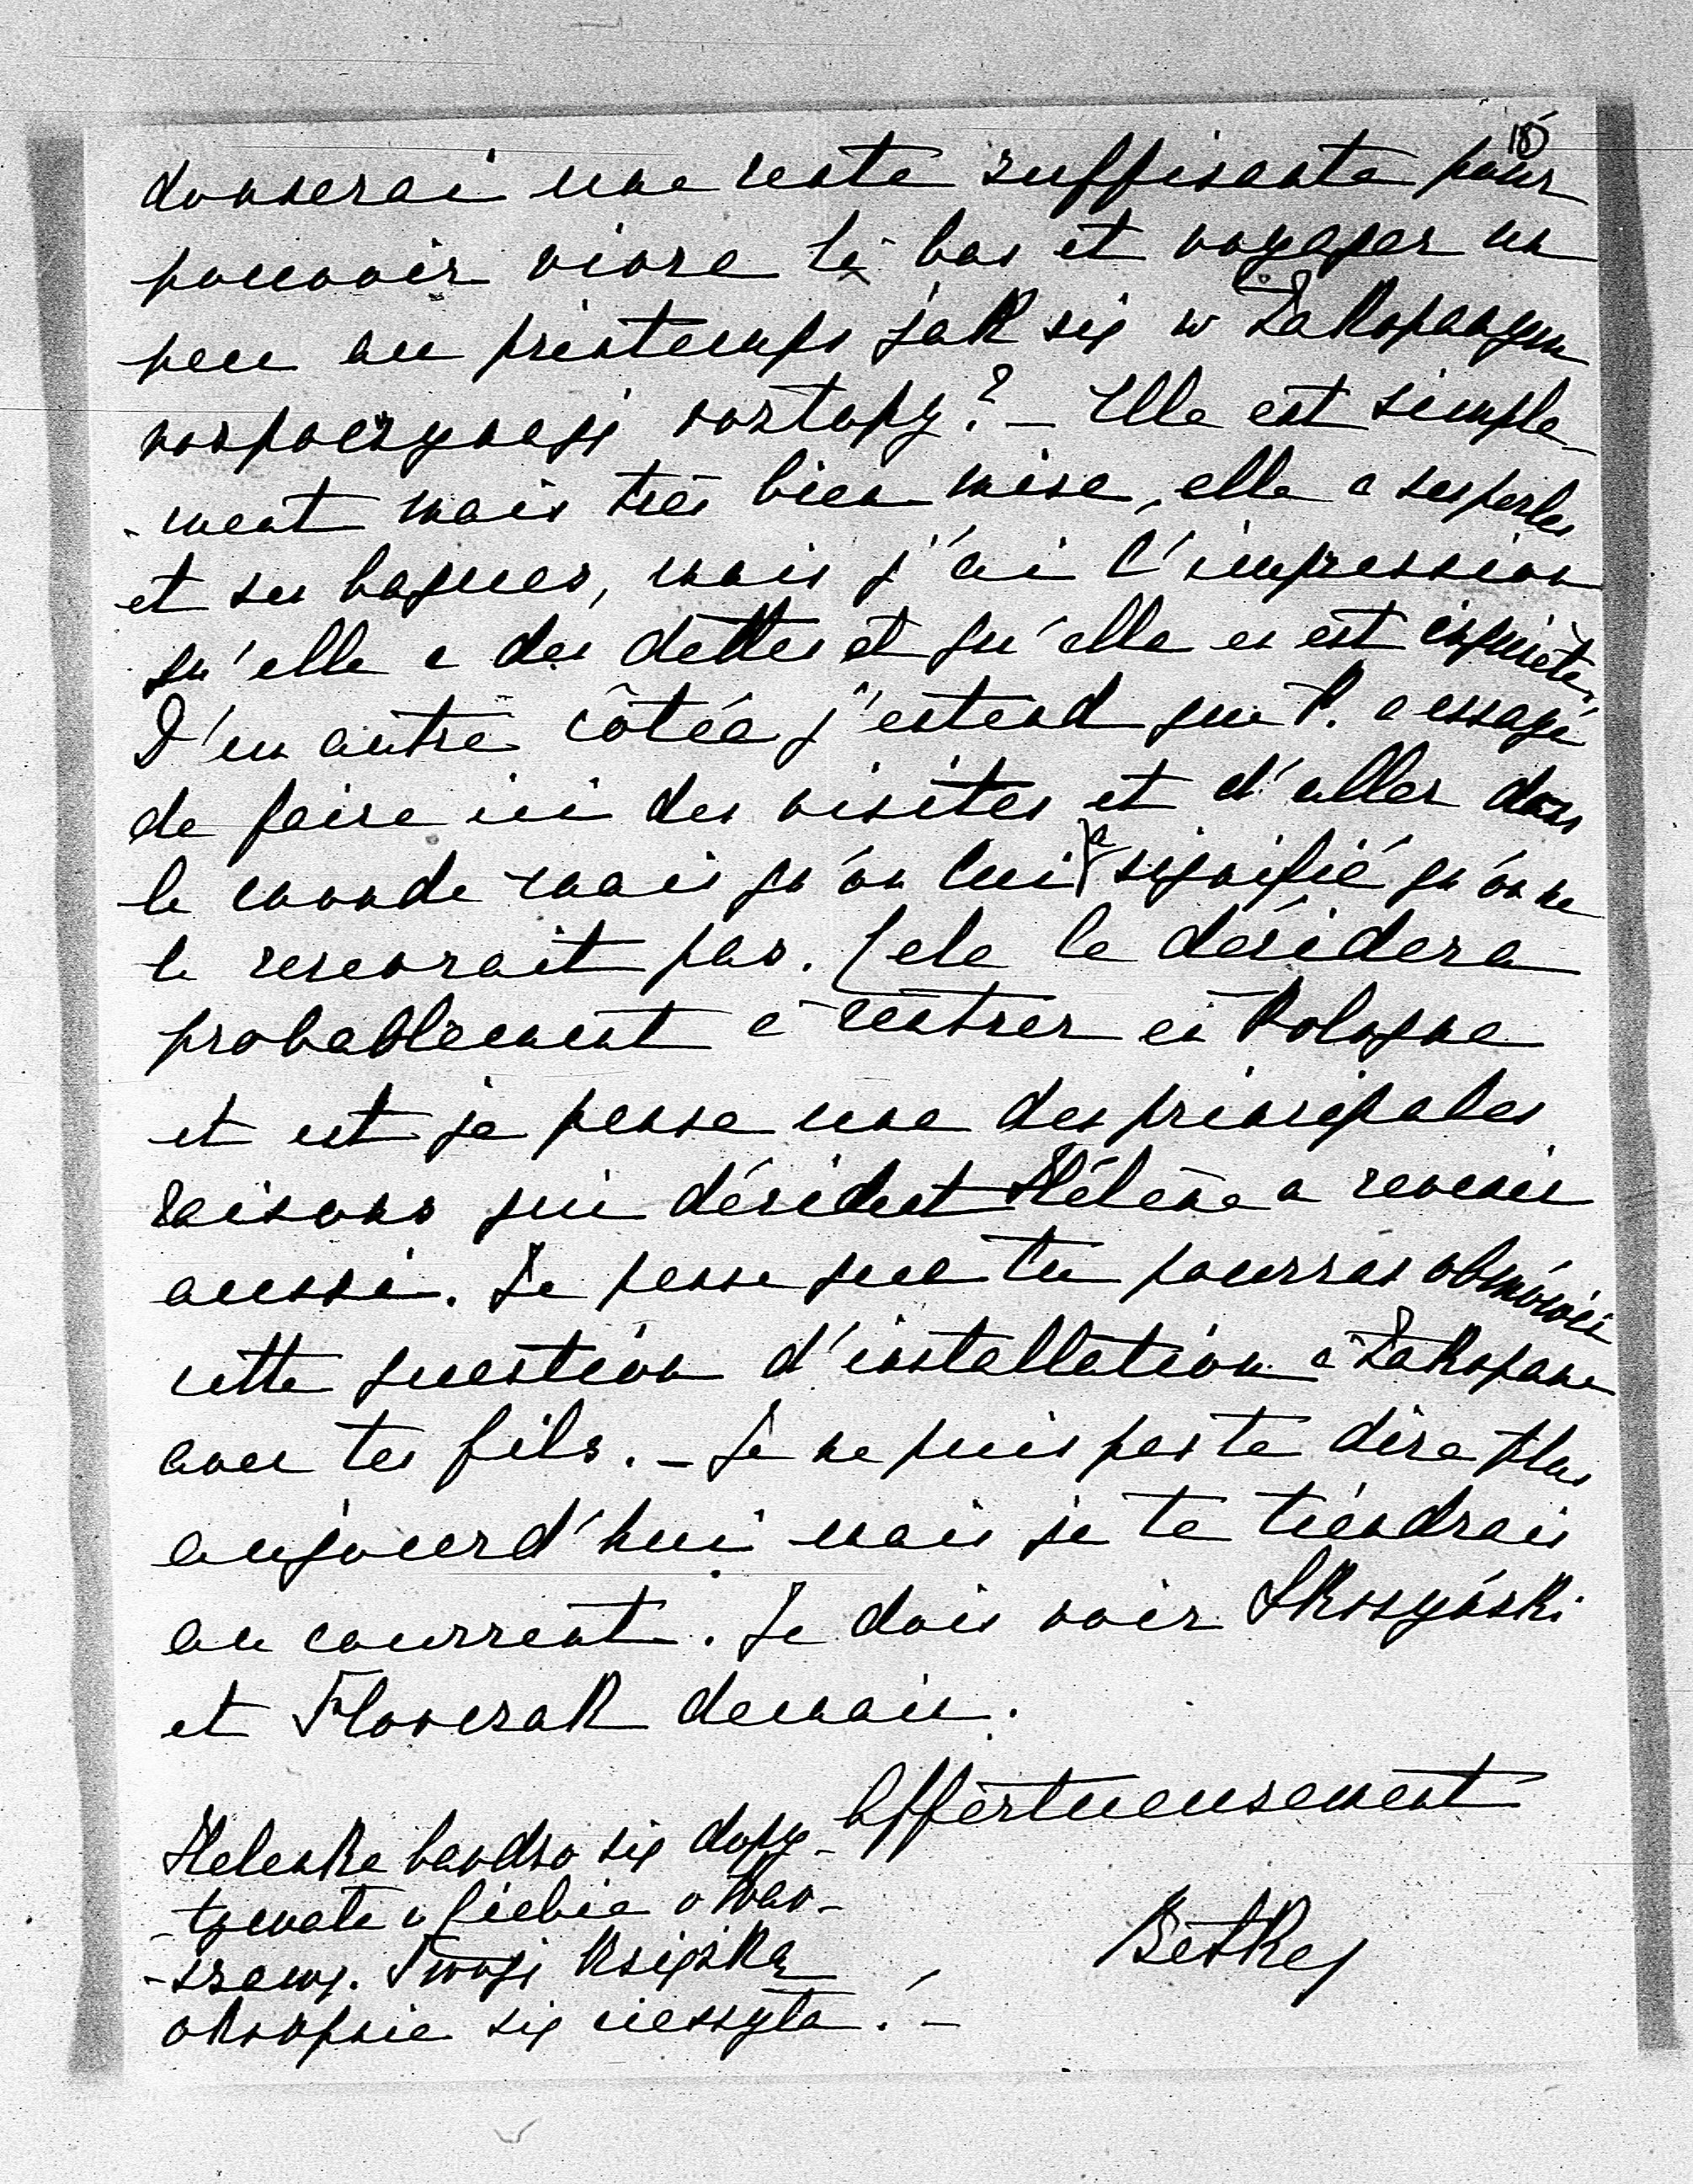 18
donnerai une rente suffisante pour
pouvoir vivre là bas et voyager un
peu au printemps jak się w Zakopanym
rozpoczynają roztopy? – Elle est simple-
-ment mais très bien mise, elle a ses perles
et ses bagues, mais j'ai l'impression
qu'elle a des dettes et qu'elle en est inquiète.
D'un autre côtée j'entend que P. a essayé
de faire ici des visites et d'aller dans
le monde mais qu'on lui a signifié qu'on ne
le recevrait pas. Cela le décidera
probablement a rentrer en Pologne
et est je pense une des principales
raisons qui décident Hélène a revenir
aussi. Je pense que tu pourras obmówić
cette question d'installation a Zakopane
avec tes fils. – Je ne puis pas te dire plus
aujourd'hui mais je te tiendrais
au courrent. Je dois voir Skrzyński
et Florczak demain.
Affectueusement
Betkę
Helenka bardzo się dopy-
-tywała u Ciebie o War-
-szawę. Twoją książką
okropnie się cieszyła. –